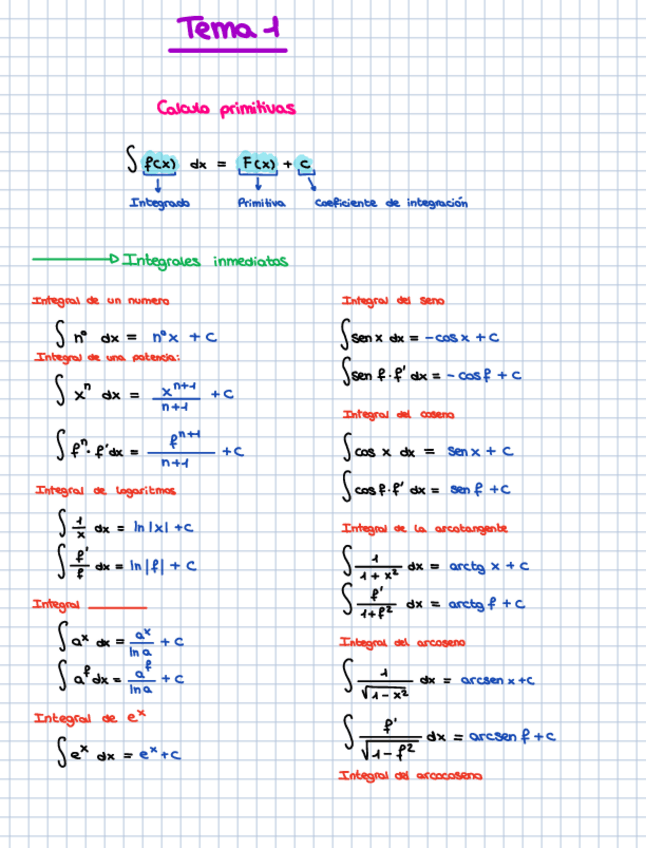 Tema 1
Calculo primitivas
∫ f(x) dx = F(x) + C
Integrado Primitiva Coeficiente de integración
Integrales inmediatas
Integral de un numero
∫ nº dx = nºx + C
Integral de una potencia:
∫ xⁿ dx = xⁿ⁺¹/n+1 + C
∫ fⁿ · f' dx = fⁿ⁺¹/n+1 + C
Integral de logaritmos
∫ 1/x dx = ln|x| + C
∫ f'/f dx = ln|f| + C
Integral
∫ aˣ dx = aˣ/ln a + C
∫ a^f dx = a^f/ln a + C
Integral de eˣ
∫ eˣ dx = eˣ + C
Integral del seno
∫ sen x dx = -cos x + C
∫ sen f · f' dx = -cos f + C
Integral del coseno
∫ cos x dx = sen x + C
∫ cos f · f' dx = sen f + C
Integral de la arcotangente
∫ 1/1+x² dx = arctg x + C
∫ f'/1+f² dx = arctg f + C
Integral del arcoseno
∫ 1/√1-x² dx = arcsen x + C
∫ f'/√1-f² dx = arcsen f + C
Integral del arcocoseno